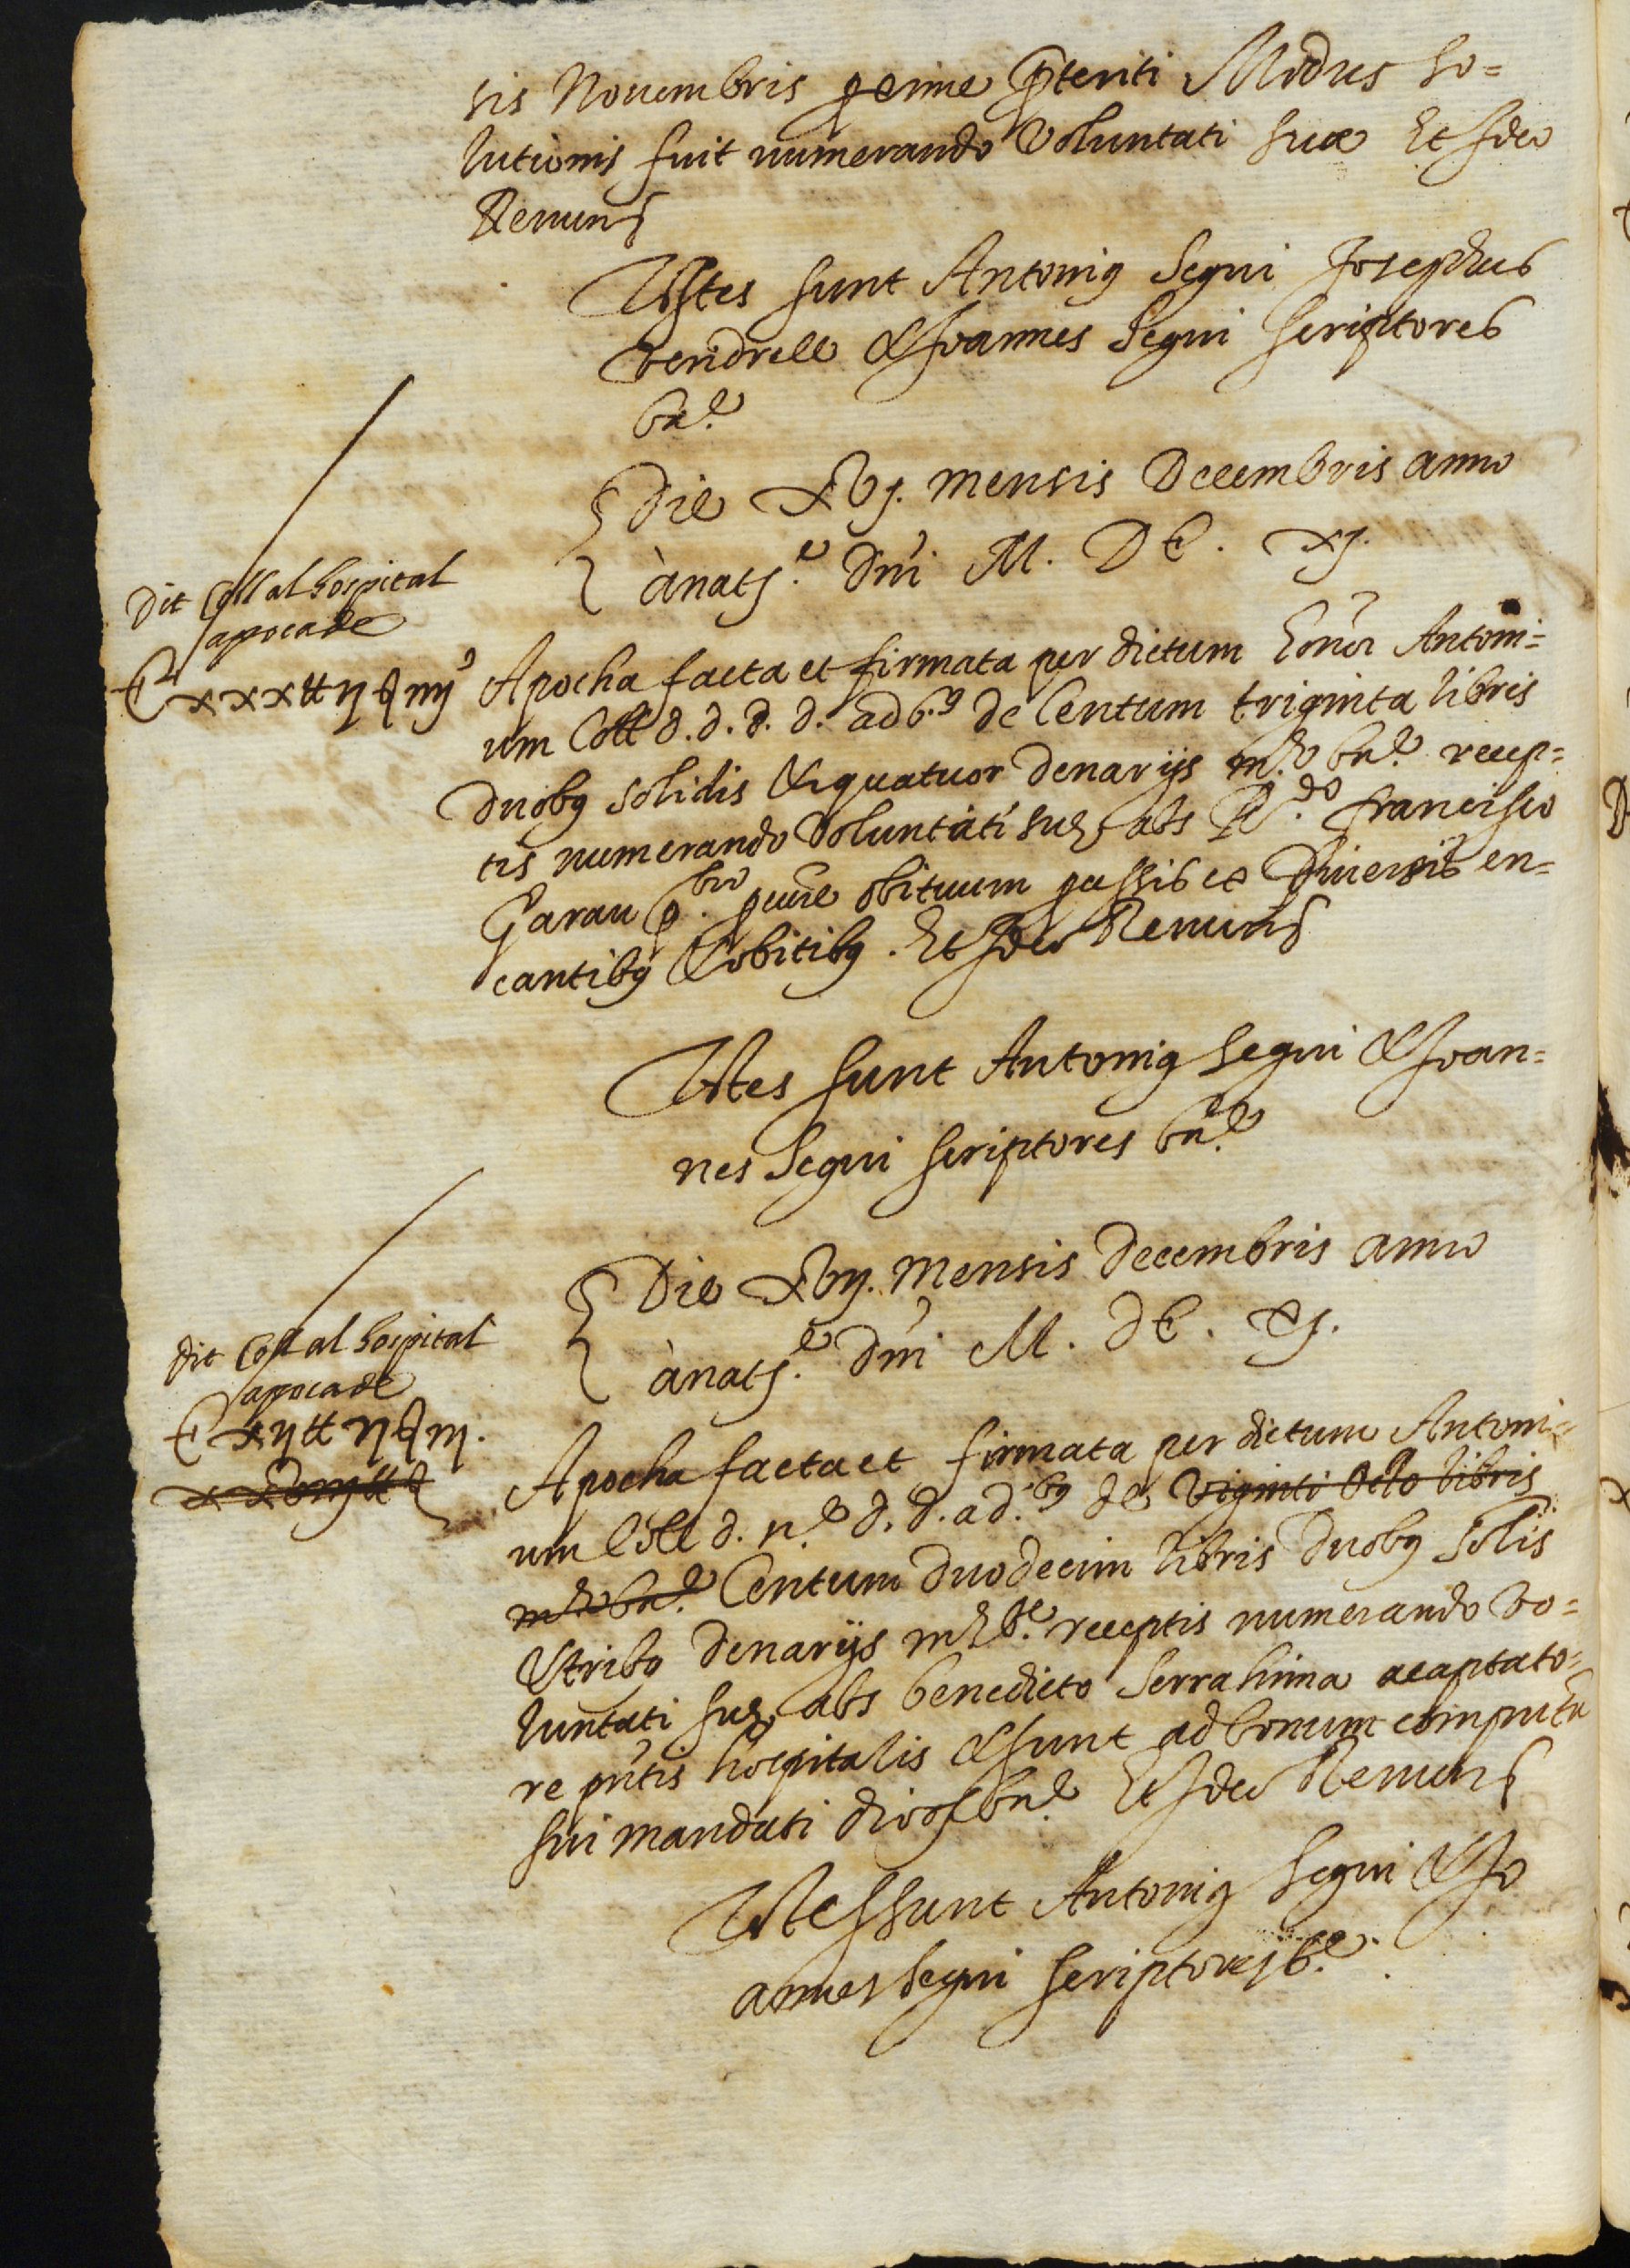 sis Nouembris proxime preteriti Modus so=
lutionis fuit numerando Voluntati suæ Et Ideo
Renun
Testes sunt Antonius Segui Josephus
vendrell & Joannes Segui scriptores
bne
Die xvj. mensis Decembris anno
à natte Dni M. DC. xj.
dit Coll al hospital
apoca de
C xxx ll ij s iiij
Apocha facta et firmata per dictum honor Antoni=
um Coll d. d. d. d. ad bus de Centum triginta libris
duobus solidis & quatuor denarijs bne recep=
tis numerando Voluntati suæ abs Rdo francisco
Garau pbro obituum passis et Diuersis en=
cantibus & obitibus. Et Ideo Renun
Testes sunt Antonius Segui & Joan=
nes Segui scriptores bne
Die xvij. mensis Decembris anno
à natte Dni M. DC. xj.
dit Coll al hospital
apoca de
C xij ll ij s iij.
xxviij ll s
Apocha facta et firmata per dictum Antoni=
um Coll d. ne d. d. ad. bus de Viginti Octo libris
bne Centum duodecim libris duobus solis
& tribus denarijs receptis numerando Vo=
luntati suæ abs benedicto Serrahima acaptato=
re pntis hospitalis & sunt ad bonum computum
sui mandati bne Et Ideo Renun
Testes sunt Antonius Segui & Jo
annes Segui scriptores be